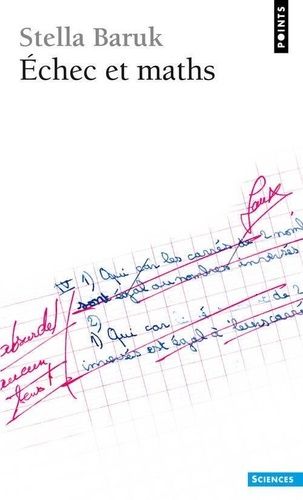 Stella Baruk
Échec et maths
POINTS
faux
IV 1) Oui car les carrés de 2 nom
sont égal ou nombres inverses
absurde!
2)
1) Oui car de 2 nom
aucun
inverses est égal à leurs carré
sens!
SCIENCES